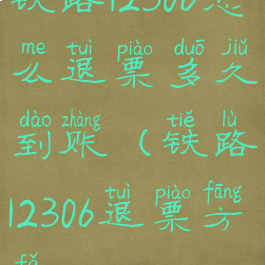 铁路12306怎
me tuì piào duō jiǔ
么退票多久
dào zhàng tiě lù
到账（铁路
tuì piào fāng
12306退票方
fǎ